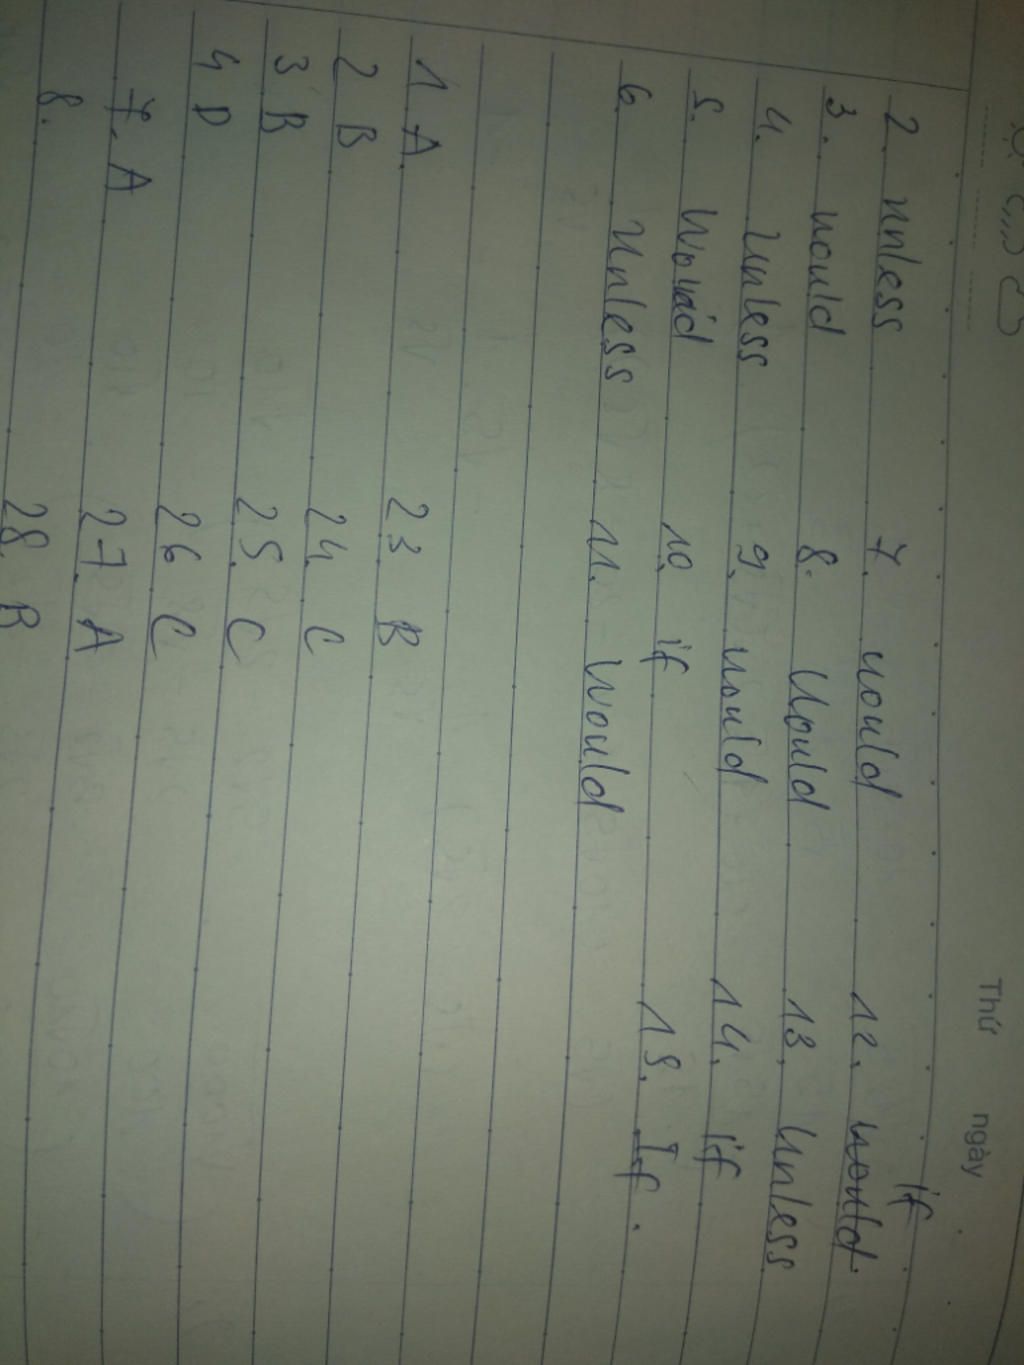 Thứ ngày
if
2. unless 7. would 12. would
3. would 8. Would 13. Unless
4. Unless 9. would 14. if
5. Would 10. if 15. If.
6. Unless 11. Would
1 A 23 B
2 B 24. C
3 B 25. C
4 D 26 C
7. A 27. A
8. 28. B